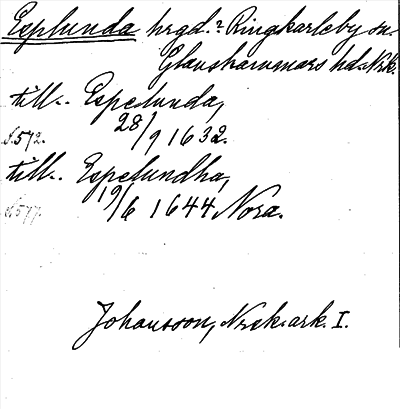 Esplunda hrgd. i Ringkarleby sn.
Glanshammars hd. Nrk.
till.. Espelunda,
S. 572. 28/9 1632.
till.. Espelundha,
S. 577. 19/6 1644 Nora.
Johansson, Nrsk. ark. I.